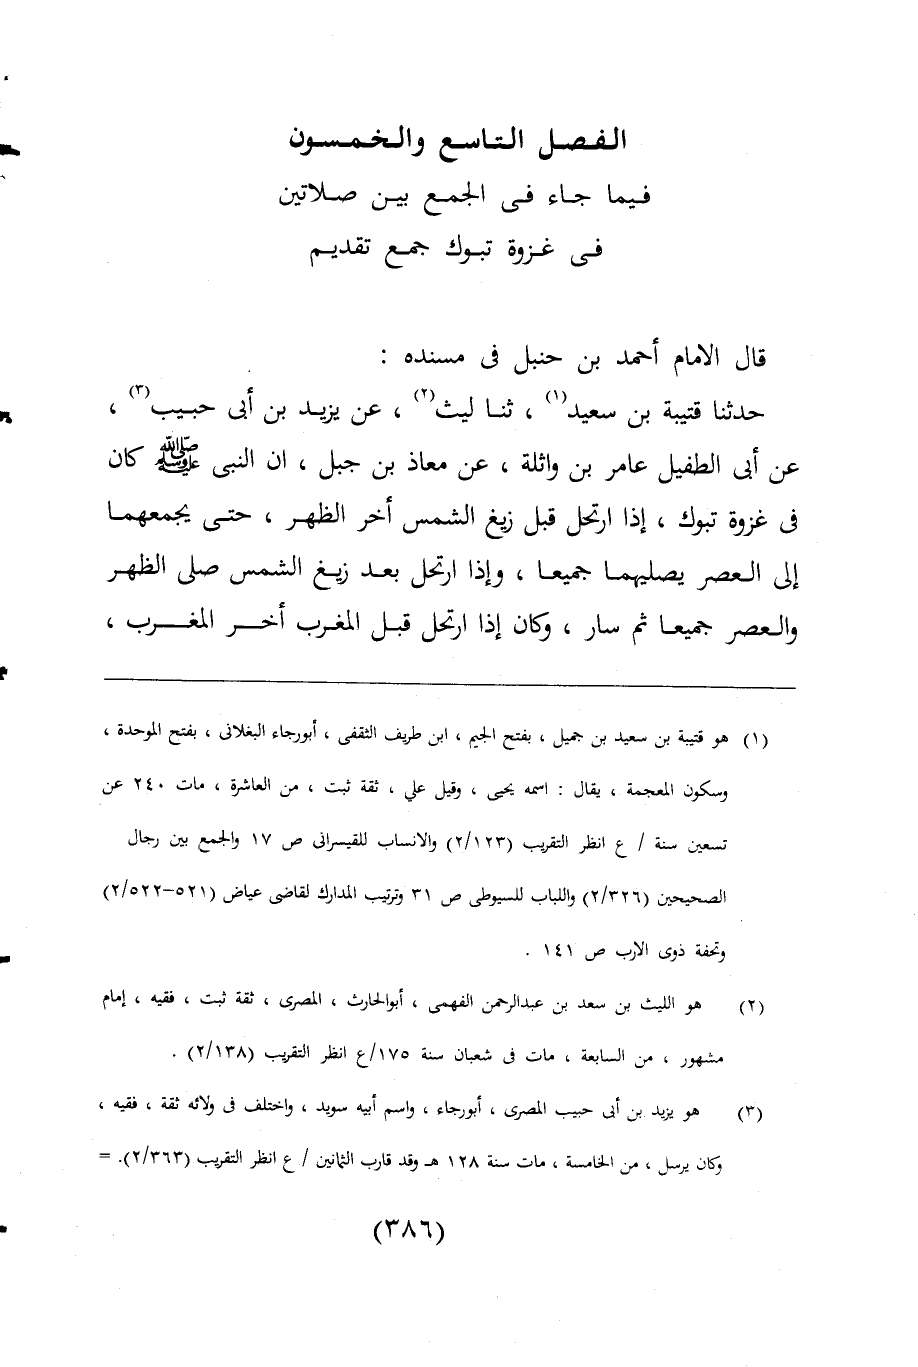 الفصل التاسع والخمسون
فيما جاء فى الجمع بين صلاتين
فى غزوة تبوك جمع تقديم
قال الامام أحمد بن حنبل فى مسنده :
حدثنا قتيبة بن سعيد(١) ، ثنا ليث(٢) ، عن يزيد بن أبى حبيب(٣) ،
عن أبى الطفيل عامر بن واثلة ، عن معاذ بن جبل ، ان النبى ﷺ كان
فى غزوة تبوك ، إذا ارتحل قبل زيغ الشمس أخر الظهر ، حتى يجمعهما
إلى العصر يصليهما جميعا ، وإذا ارتحل بعد زيغ الشمس صلى الظهر
والعصر جميعا ثم سار ، وكان إذا ارتحل قبل المغرب أخر المغرب ،
(١) هو قتيبة بن سعيد بن جميل ، بفتح الجيم ، ابن طريف الثقفى ، أبورجاء البغلانى ، بفتح الموحدة ،
وسكون المعجمة ، يقال : اسمه يحيى ، وقيل علي ، ثقة ثبت ، من العاشرة ، مات ٢٤٠ عن
تسعين سنة / ع انظر التقريب (٢/١٢٣) والانساب للقيسرانى ص ١٧ والجمع بين رجال
الصحيحين (٢/٣٢٦) واللباب للسيوطى ص ٣١ وترتيب المدارك لقاضى عياض (٥٢١-٢/٥٢٢)
وتحفة ذوى الارب ص ١٤١ .
(٢) هو الليث بن سعد بن عبدالرحمن الفهمى ، أبوالحارث ، المصرى ، ثقة ثبت ، فقيه ، إمام
مشهور ، من السابعة ، مات فى شعبان سنة ١٧٥/ع انظر التقريب (٢/١٣٨) .
(٣) هو يزيد بن أبى حبيب المصرى ، أبورجاء ، واسم أبيه سويد ، واختلف فى ولائه ثقة ، فقيه ،
وكان يرسل ، من الخامسة ، مات سنة ١٢٨ هـ وقد قارب الثمانين / ع انظر التقريب (٢/٣٦٣). =
(٣٨٦)